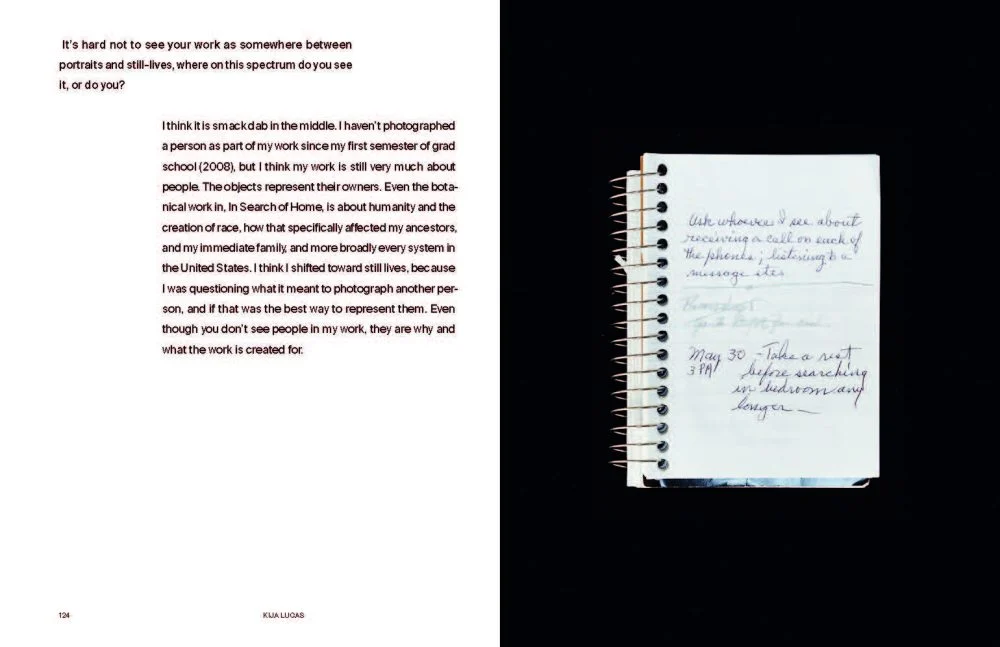 It's hard not to see your work as somewhere between
portraits and still-lives, where on this spectrum do you see
it, or do you?
I think it is smack dab in the middle. I haven't photographed
a person as part of my work since my first semester of grad
school (2008), but I think my work is still very much about
people. The objects represent their owners. Even the bota-
nical work in, In Search of Home, is about humanity and the
creation of race, how that specifically affected my ancestors,
and my immediate family, and more broadly every system in
the United States. I think I shifted toward still lives, because
I was questioning what it meant to photograph another per-
son, and if that was the best way to represent them. Even
though you don't see people in my work, they are why and
what the work is created for.
124
KIJA LUCAS
Ask whoever I see about
receiving a call on each of
the phones; listening to a
message etc
May 30 - Take a rest
3 PM before searching
in bedroom any
longer —